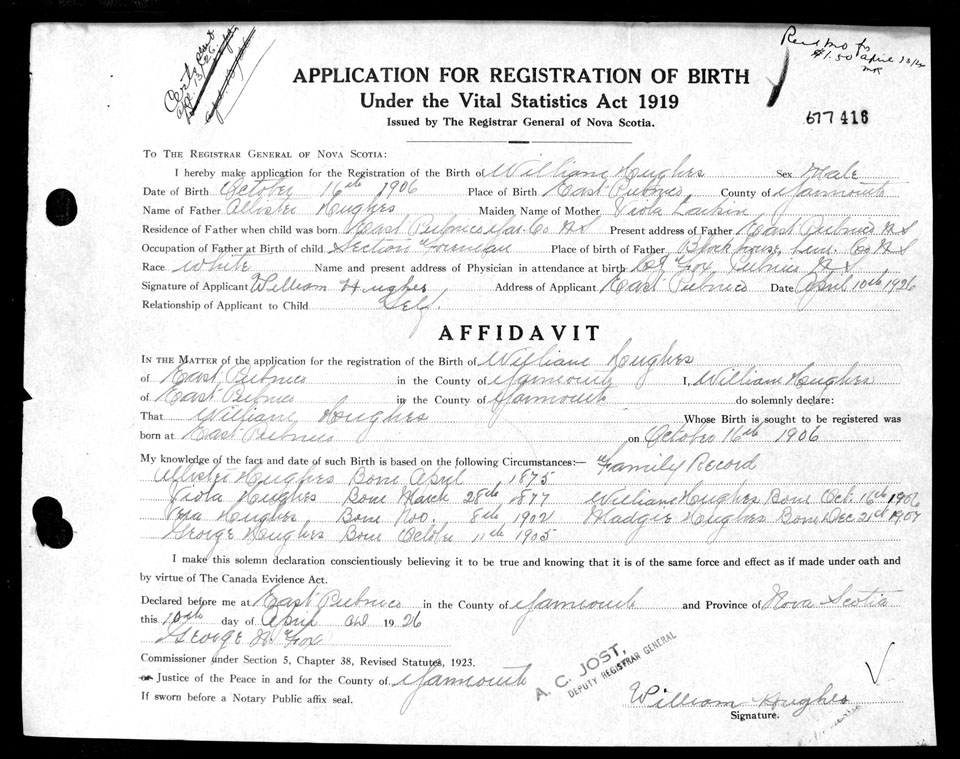 Cert sent
Apr. 13/26
Rec'd mo for
$1.50 april 13/26
MR
APPLICATION FOR REGISTRATION OF BIRTH
Under the Vital Statistics Act 1919
Issued by The Registrar General of Nova Scotia.
577 416
TO THE REGISTRAR GENERAL OF NOVA SCOTIA:
I hereby make application for Registration of the Birth of William Hughes Sex Male
Date of Birth October 16th 1906 Place of Birth East Pubnico County of Yarmouth
Name of Father Allister Hughes Maiden Name of Mother Viola Larkin
Residence of Father when child was born East Pubnico Yar. Co N S Present address of Father East Pubnico N S
Occupation of Father at Birth of child Section Foreman Place of birth of Father Blockhouse, Lun. Co N S
Race White Name and present address of Physician in attendance at birth Fox, Pubnico N S
Signature of Applicant William Hughes Address of Applicant East Pubnico Date April 10th 1926
Relationship of Applicant to Child Self.
AFFIDAVIT
IN THE MATTER of the application for the registration of the Birth of William Hughes
of East Pubnico in the County of Yarmouth I, William Hughes
of East Pubnico in the County of Yarmouth do solemnly declare:
That William Hughes Whose Birth is sought to be registered was
born at East Pubnico on October 16th 1906
My knowledge of the fact and date of such Birth is based on the following Circumstances:— Family Record
Allister Hughes Bone April 1875
Viola Hughes Bone March 28th 1877 William Hughes Bone Oct. 16th 1906
Vera Hughes Bone Nov. 8th 1902 Madgie Hughes Bone Dec 21st 1907
George Hughes Bone October 11th 1905
I make this solemn declaration conscientiously believing it to be true and knowing that it is of the same force and effect as if made under oath and
by virtue of The Canada Evidence Act.
Declared before me at East Pubnico in the County of Yarmouth and Province of Nova Scotia
this 10th day of April AD 1926
George N. Fox
Commissioner under Section 5, Chapter 38, Revised Statutes, 1923.
or Justice of the Peace in and for the County of Yarmouth
If sworn before a Notary Public affix seal.
A. C. JOST,
DEPUTY REGISTRAR GENERAL
William Hughes
Signature.